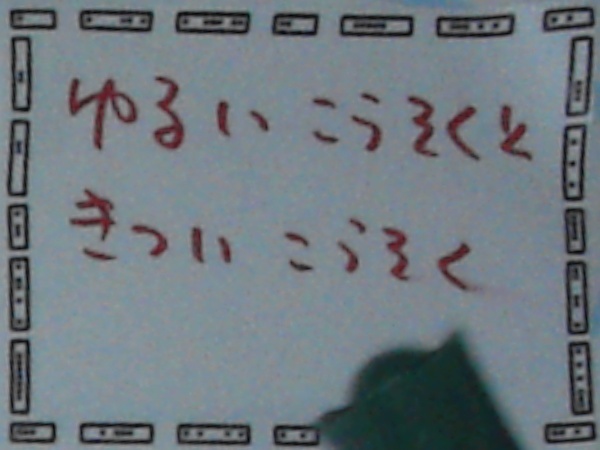 ゆるい こうそくと
きつい こうそく